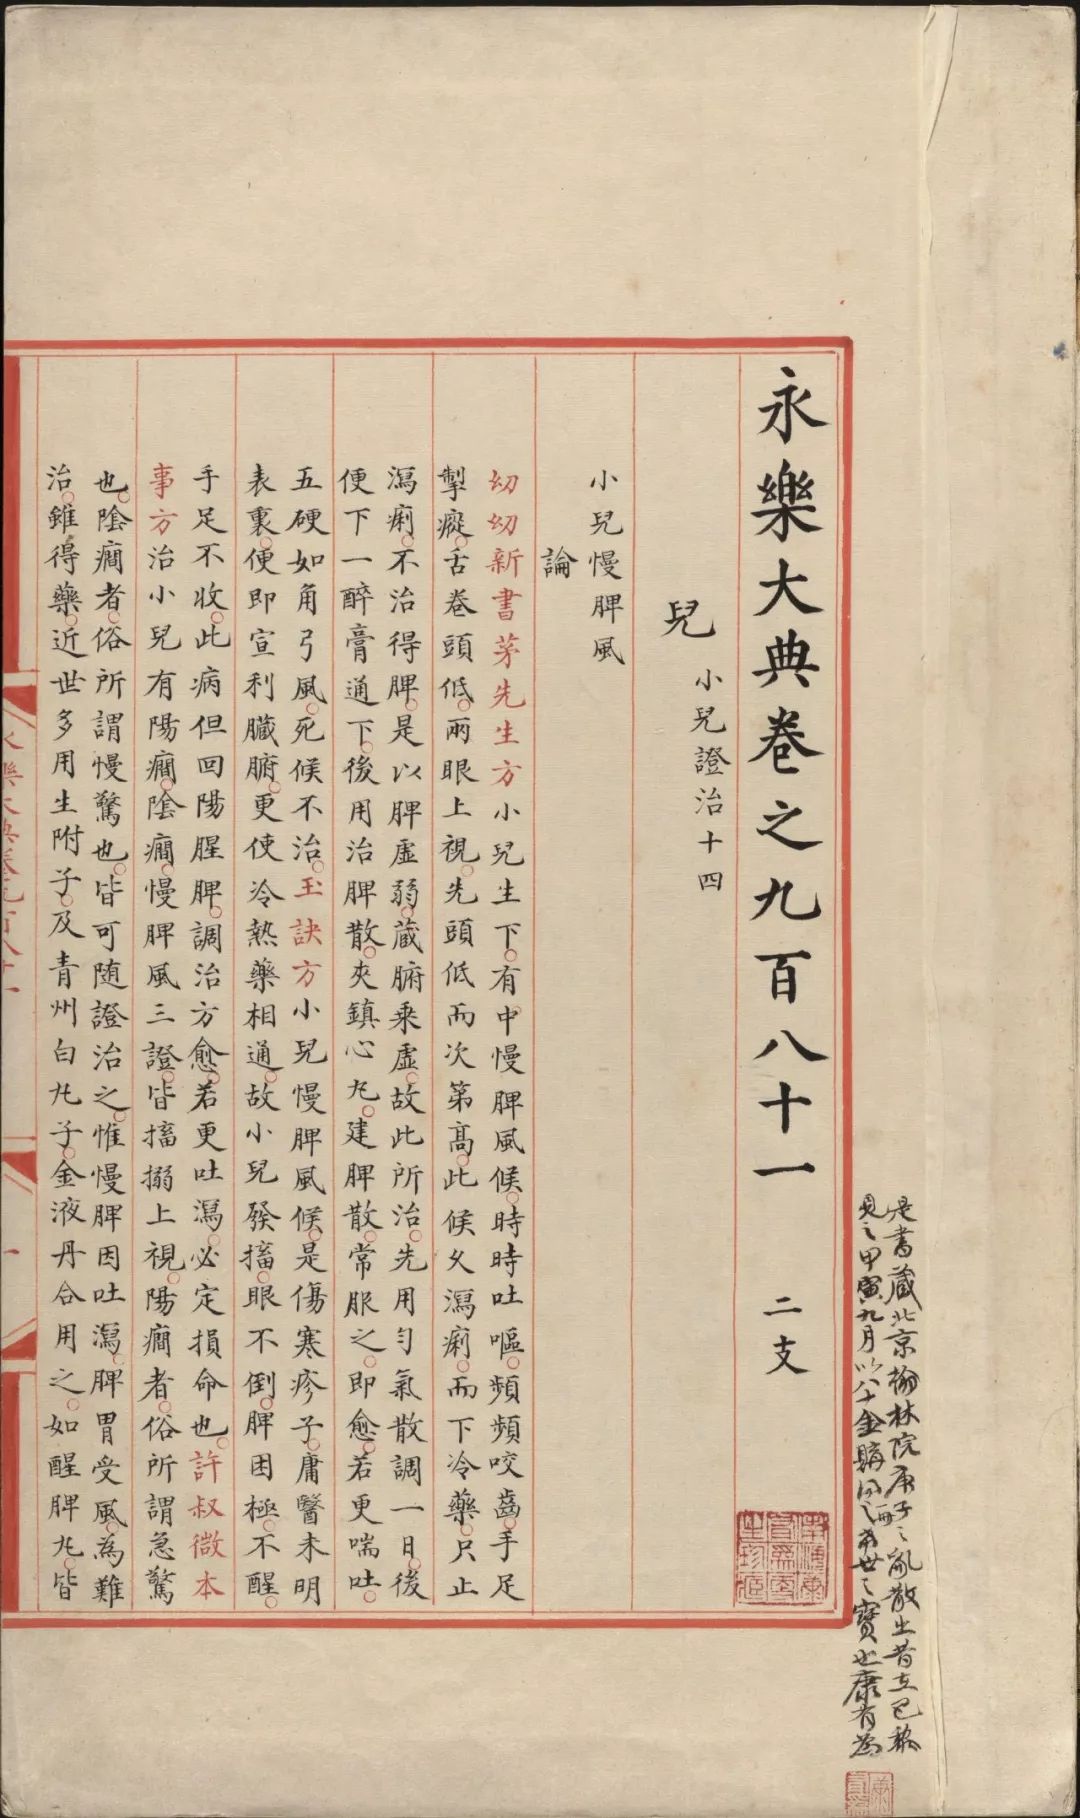 永樂大典卷之九百八十一 二支
兒 小兒證治十四
小兒慢脾風
論
幼幼新書茅先生方小兒生下有中慢脾風候時時吐嘔頻頻咬齒手足
掣瘲舌卷頭低兩眼上視先頭低而次第高此候乆瀉痢而下冷藥只止
瀉痢不治得脾是以脾虛弱藏腑乘虛故此所治先用勻氣散調一日後
便下一醉膏通下後用治脾散夾鎮心丸建脾散常服之即愈若更喘吐
五硬如角弓風死候不治玉訣方小兒慢脾風候是傷寒疹子庸醫未明
表裏便即宣利臟腑更使冷熱藥相通故小兒發搐眼不倒脾困極不醒
手足不收此病但回陽醒脾調治方愈若更吐瀉必定損命也許叔微本
事方治小兒有陽癇陰癇慢脾風三證皆搐搦上視陽癇者俗所謂急驚
也陰癇者俗所謂慢驚也皆可随證治之惟慢脾因吐瀉脾胃受風為難
治雖得藥近世多用生附子及青州白丸子金液丹合用之如醒脾丸皆
永樂大典卷九百八十一
一
是書藏北京翰林院庚子之亂散出昔在巴黎
見之甲寅九月以八十金購得二冊希世之寶也康有為